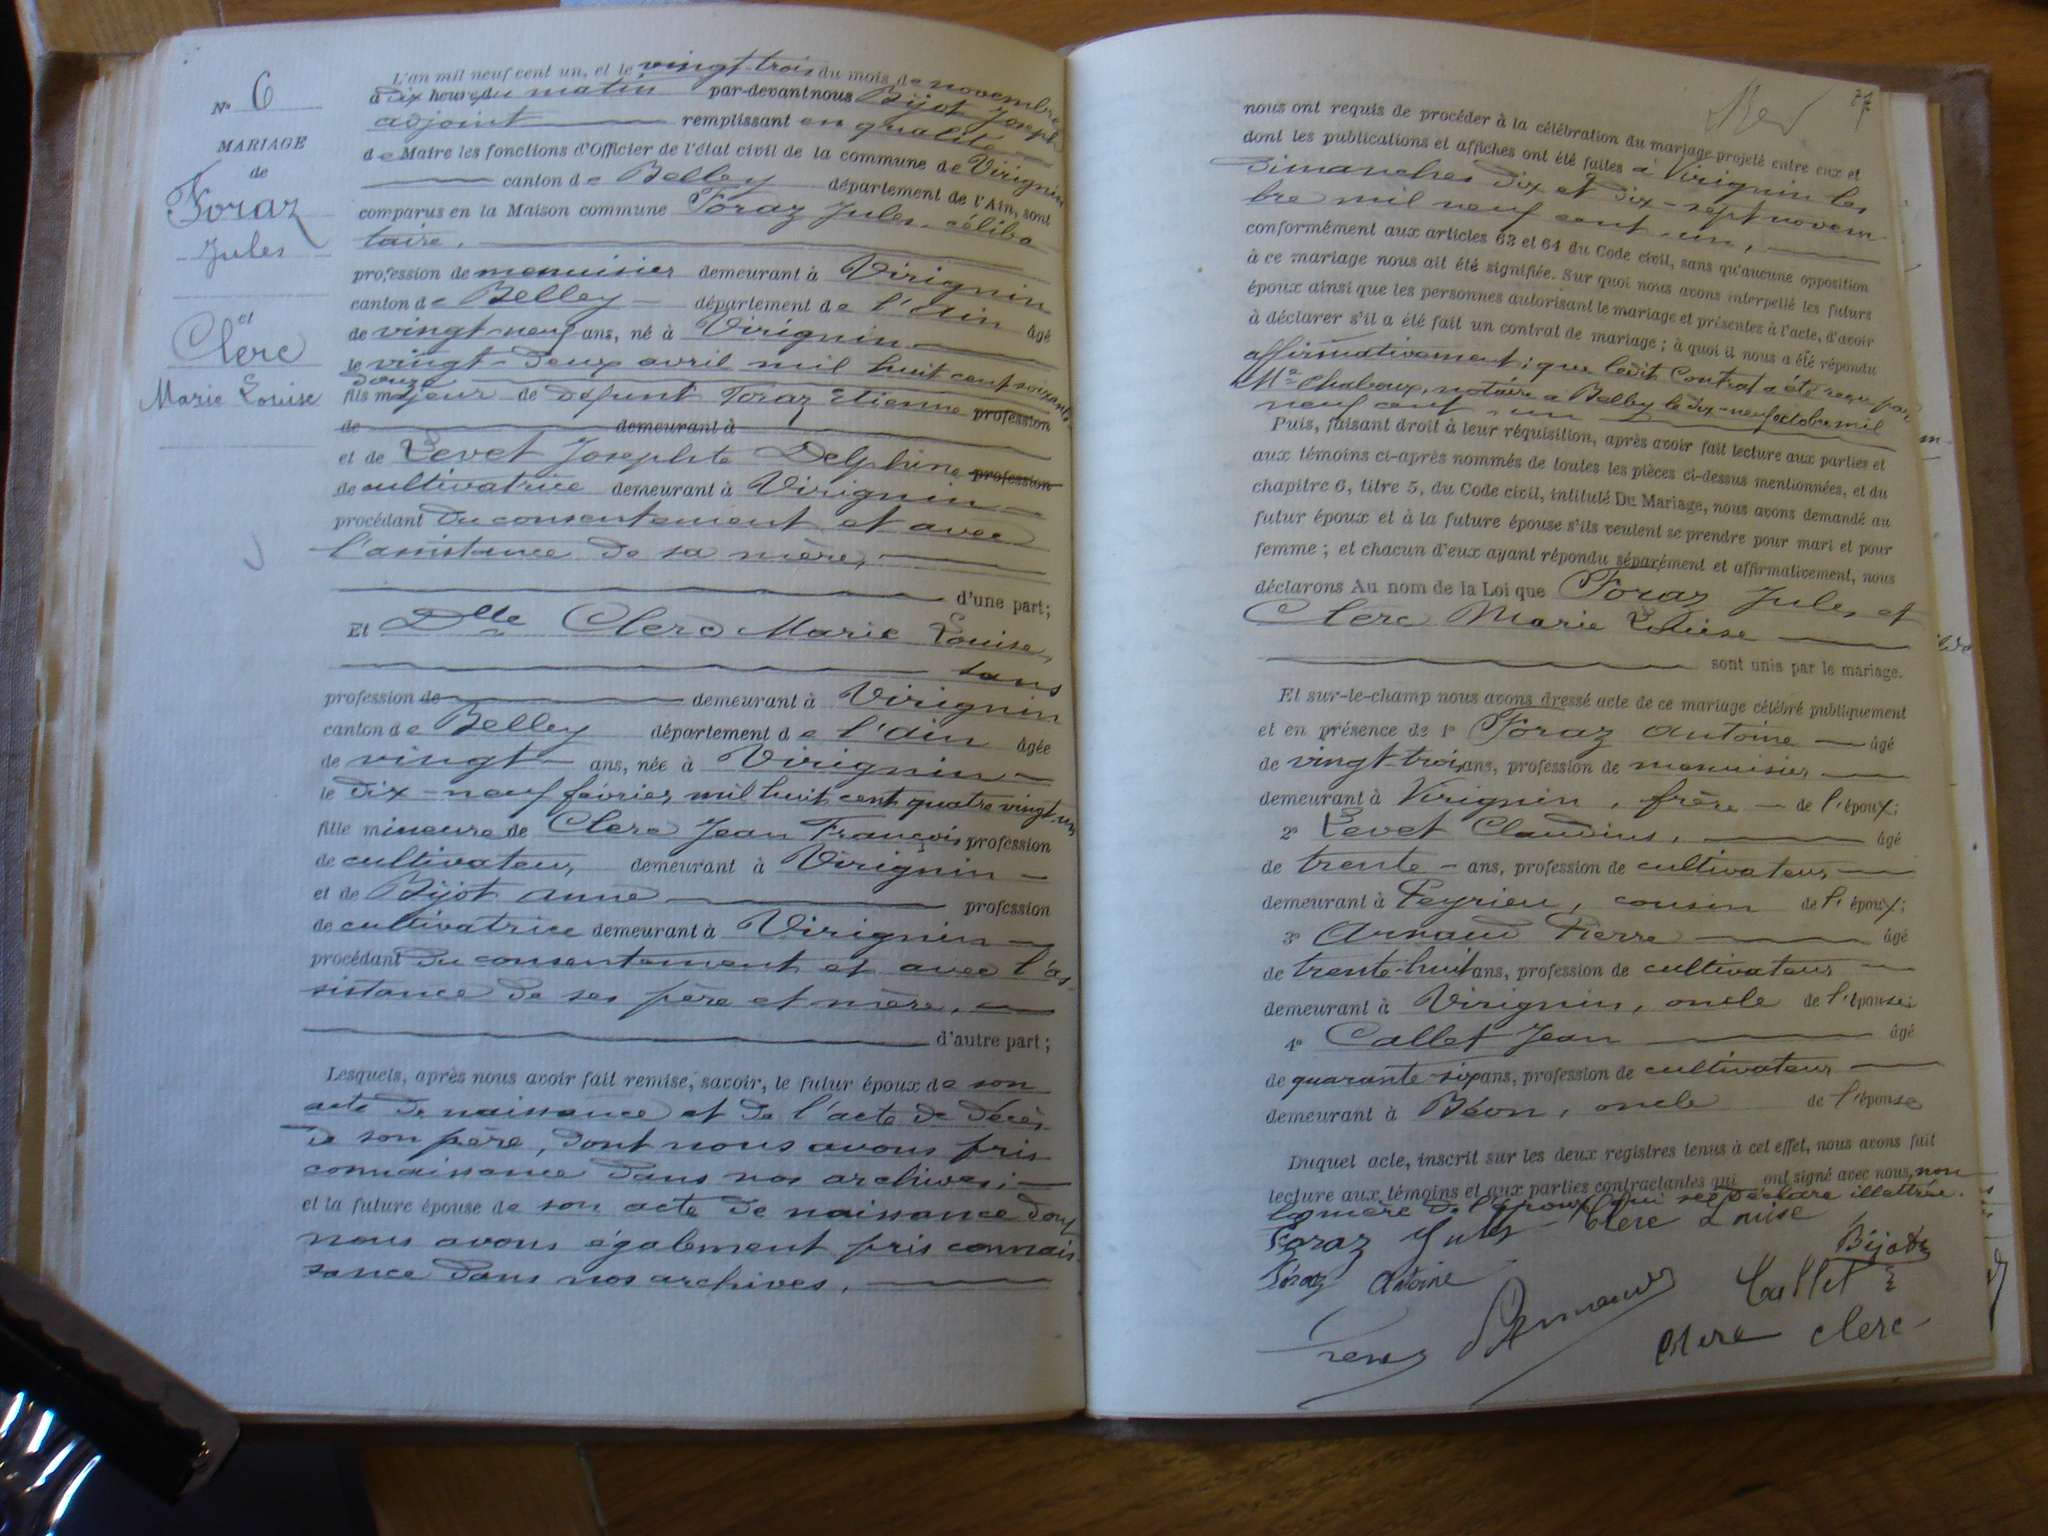 N° 6
MARIAGE
de
Foraz
Jules
et
Clerc
Marie Louise
L'an mil neuf cent un, et le vingt-trois du mois de novembre
à dix heures du matin par-devant nous Bijot Joseph
adjoint remplissant en qualité
de Maire les fonctions d'Officier de l'état civil de la commune de Virignin
canton de Belley département de l'Ain, sont
comparus en la Maison commune Foraz Jules, céliba
taire,
profession de menuisier demeurant à Virignin
canton de Belley département de l'Ain âgé
de vingt-neuf ans, né à Virignin
le vingt-deux avril mil huit cent soixante
douze
fils majeur de défunt Foraz Etienne profession
de demeurant à
et de Levet Josephte Delphine profession
de cultivatrice demeurant à Virignin
procédant du consentement et avec
l'assistance de sa mère,
d'une part;
Et Dlle Clerc Marie Louise,
sans
profession de demeurant à Virignin
canton de Belley département de l'Ain âgée
de vingt ans, née à Virignin
le dix-neuf février mil huit cent quatre vingt-un
fille mineure de Clerc Jean François profession
de cultivateur, demeurant à Virignin
et de Bijot Anne profession
de cultivatrice demeurant à Virignin
procédant du consentement et avec l'as
sistance de ses père et mère,
d'autre part;
Lesquels, après nous avoir fait remise, savoir, le futur époux de son
acte de naissance et de l'acte de décès
de son père, dont nous avons pris
connaissance dans nos archives;
et la future épouse de son acte de naissance dont
nous avons également pris connais
sance dans nos archives,
nous ont requis de procéder à la célébration du mariage projeté entre eux et
dont les publications et affiches ont été faites à Virignin les
dimanches dix et dix-sept novem
bre mil neuf cent un,
conformément aux articles 63 et 64 du Code civil, sans qu'aucune opposition
à ce mariage nous ait été signifiée. Sur quoi nous avons interpellé les futurs
époux ainsi que les personnes autorisant le mariage et présentes à l'acte, d'avoir
à déclarer s'il a été fait un contrat de mariage; à quoi il nous a été répondu
affirmativement; que ledit Contrat a été reçu par
Me Chaboux, notaire à Belley le dix-neuf octobre mil
neuf cent un
Puis, faisant droit à leur réquisition, après avoir fait lecture aux parties et
aux témoins ci-après nommés de toutes les pièces ci-dessus mentionnées, et du
chapitre 6, titre 5, du Code civil, intitulé Du Mariage, nous avons demandé au
futur époux et à la future épouse s'ils veulent se prendre pour mari et pour
femme; et chacun d'eux ayant répondu séparément et affirmativement, nous
déclarons Au nom de la Loi que Foraz Jules et
Clerc Marie Louise
sont unis par le mariage.
Et sur-le-champ nous avons dressé acte de ce mariage célébré publiquement
et en présence de 1° Foraz Antoine âgé
de vingt-trois ans, profession de menuisier
demeurant à Virignin, frère de l'époux;
2° Levet Claudius, âgé
de trente ans, profession de cultivateur
demeurant à Peyrieu, cousin de l'époux;
3° Arnaud Pierre âgé
de trente-huit ans, profession de cultivateur
demeurant à Virignin, oncle de l'épouse;
4° Callet Jean âgé
de quarante-six ans, profession de cultivateur
demeurant à Béon, oncle de l'épouse
Duquel acte, inscrit sur les deux registres tenus à cet effet, nous avons fait
lecture aux témoins et aux parties contractantes qui ont signé avec nous, non
la mère de l'époux qui se déclare illettrée.
Foraz Jules Clerc Louise
Bijot
Foraz Antoine
Callet
Arnaud
Clerc